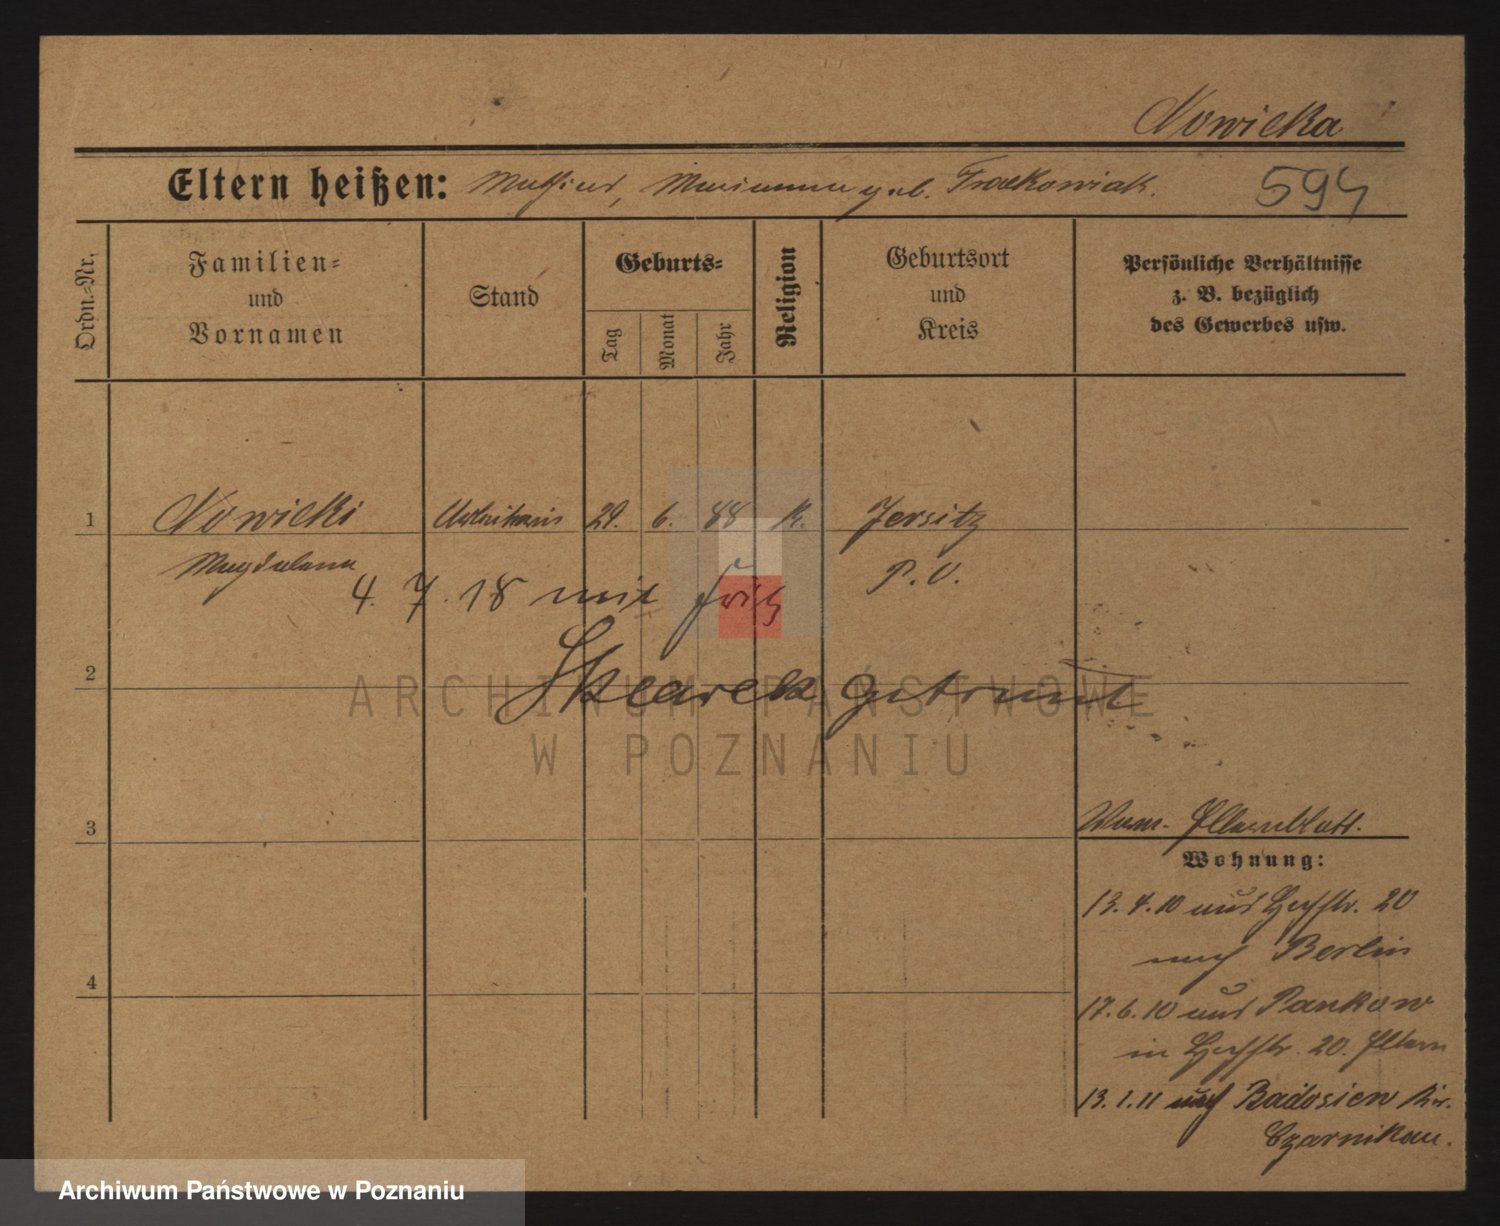 Nowicka
Eltern heißen: Mathias, Marianna geb. Frackowiak.
594
Ordn.-Nr.
Familien-
und
Vornamen
Stand
Geburts-
Tag
Monat
Jahr
Religion
Geburtsort
und
Kreis
Persönliche Verhältnisse
z. B. bezüglich
des Gewerbes usw.
1 Nowicki Arbeiterin 29. 6. 88 k. Jersitz
Magdalena P. O.
4. 7. 18 mit Fritz
Skearek getraut
2
ARCHIWUM PAŃSTWOWE
W POZNANIU
3
Elternblatt.
Wohnung:
13. 4. 10 aus Hechstr. 20
nach Berlin
4
17. 6. 10 aus Pankow
in Hechstr. 20. Eltern
13. 1. 11 nach Radosiew Kr.
Czarnikau.
Archiwum Państwowe w Poznaniu